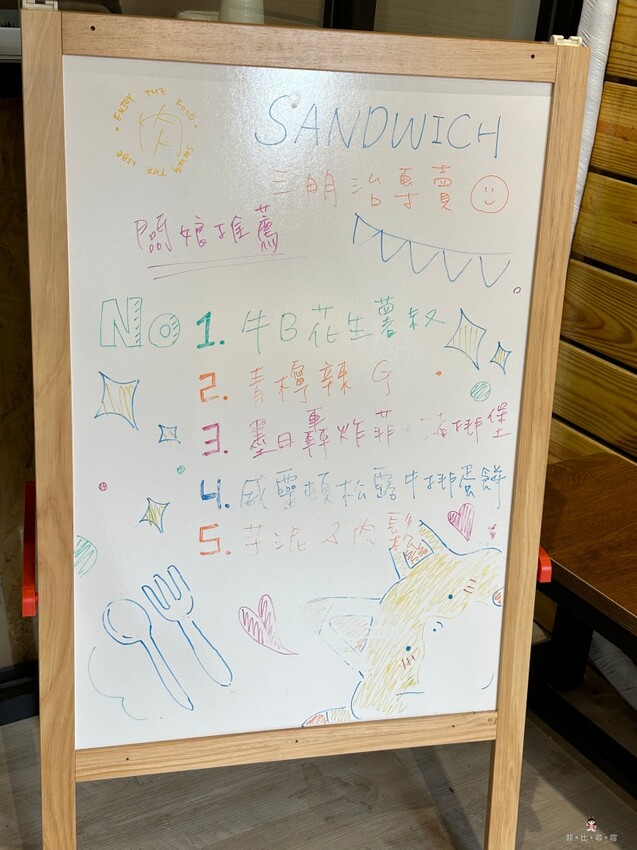 ENJOY THE FOOD
肉
THE VIBE
SANDWICH
三明治專賣
闆娘推薦
No 1. 牛B花生薯叔
2. 青檸辣G
3. 墨日轟炸菲 排堡
4. 威靈頓松露牛排蛋餅
5. 芋泥 肉鬆
菲×比×尋×寶